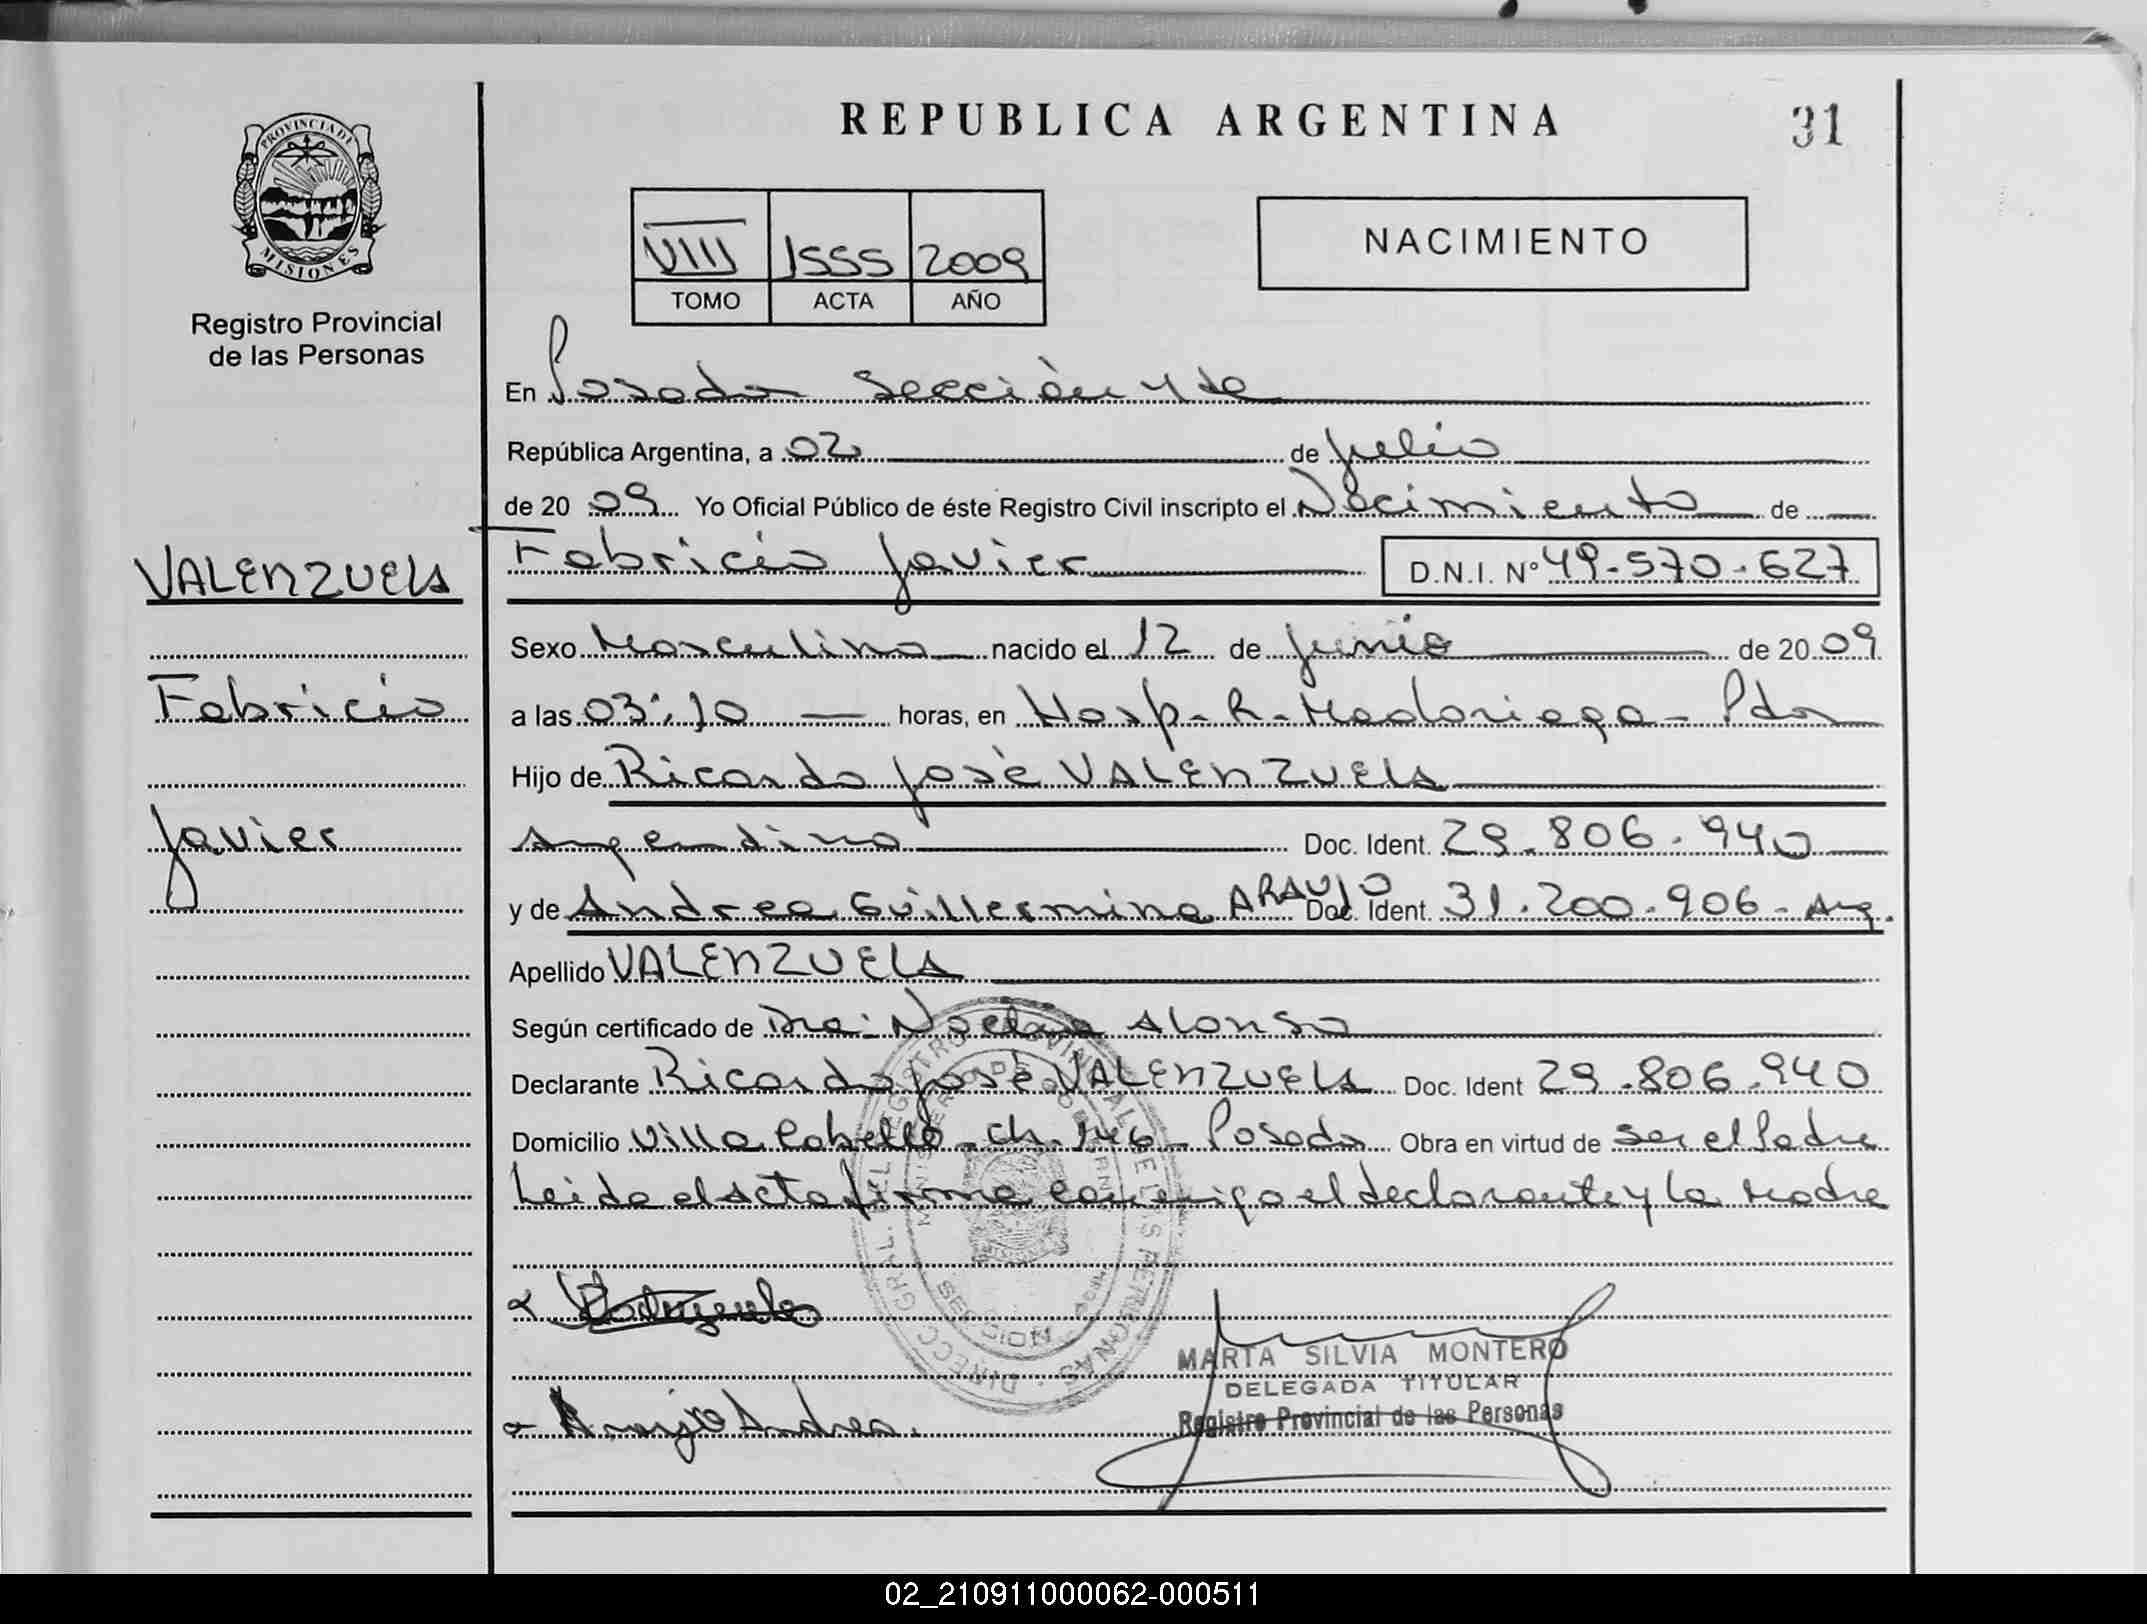 REPUBLICA ARGENTINA
31
PROVINCIA DE MISIONES
Registro Provincial
de las Personas
VIII 1555 2009
TOMO ACTA AÑO
NACIMIENTO
En Posadas Sección 4ta
República Argentina, a 02 de Julio
de 20 09 Yo Oficial Público de éste Registro Civil inscripto el Nacimiento de
Fabricio Javier D.N.I. Nº 49.570.627
VALENZUELA
Fabricio
Javier
Sexo Masculino nacido el 12 de Junio de 20 09
a las 03:10 horas, en Hosp. R. Madariaga - Pdas
Hijo de Ricardo José VALENZUELA
Argentino Doc. Ident. 29.806.940
y de Andrea Guillermina ARAUJO Doc. Ident. 31.200.906 - Arg.
Apellido VALENZUELA
Según certificado de Dra. Alonso
Declarante Ricardo José VALENZUELA Doc. Ident 29.806.940
Domicilio Villa Cabello - Ch. 146 - Posadas Obra en virtud de ser el Padre
Leida el acta firma conmigo el declarante y la Madre
MARTA SILVIA MONTERO
DELEGADA TITULAR
Registro Provincial de las Personas
Araujo Andrea.
02_210911000062-000511